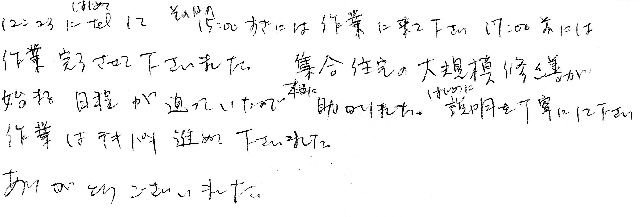 12:23にはじめてtelして その日の15:00すぎには作業に来て下さい 17:00前には
作業完了させて下さいました。 集合住宅の大規模修繕が
始まる日程が迫っていたので本当に助かりました。はじめに説明を丁寧にして下さい
作業はテキパキ進めて下さいました。
ありがとうございました。